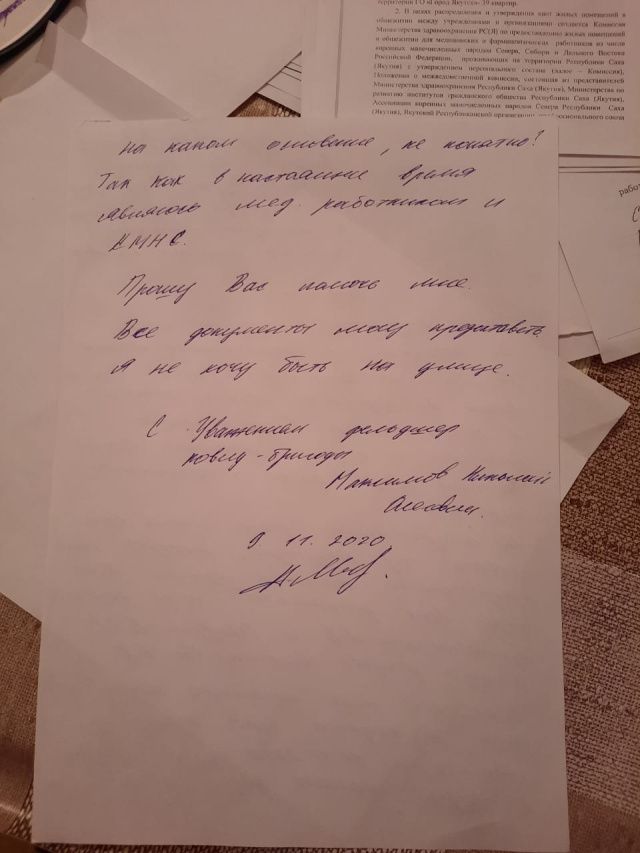 территории ГО «Город Якутск» 39 квартир.
2. В целях распределения и утверждения квот жилых помещений в
общежитии между учреждениями и организациями создается Комиссия
Министерства здравоохранения РС(Я) по предоставлению жилых помещений
в общежитии для медицинских и фармацевтических работников из числа
коренных малочисленных народов Севера, Сибири и Дальнего Востока
Российской Федерации, проживающих на территории Республики Саха
(Якутия) с утверждением персонального состава (далее – Комиссия),
Положения о межведомственной комиссии, состоящей из представителей
Министерства здравоохранения Республики Саха (Якутия), Министерства по
развитию институтов гражданского общества Республики Саха (Якутия),
Ассоциации коренных малочисленных народов Севера Республики Саха
(Якутия), Якутской Республиканской организации профессионального союза
работ
На каком основание, не понятно?
Так как в настоящие время
являюсь мед. работником и
КМНС.
Прошу Вас помочь мне.
Все документы могу предоставить.
Я не хочу быть на улице.
С Уважением фельдшер
ковид-бригады
9. 11. 2020